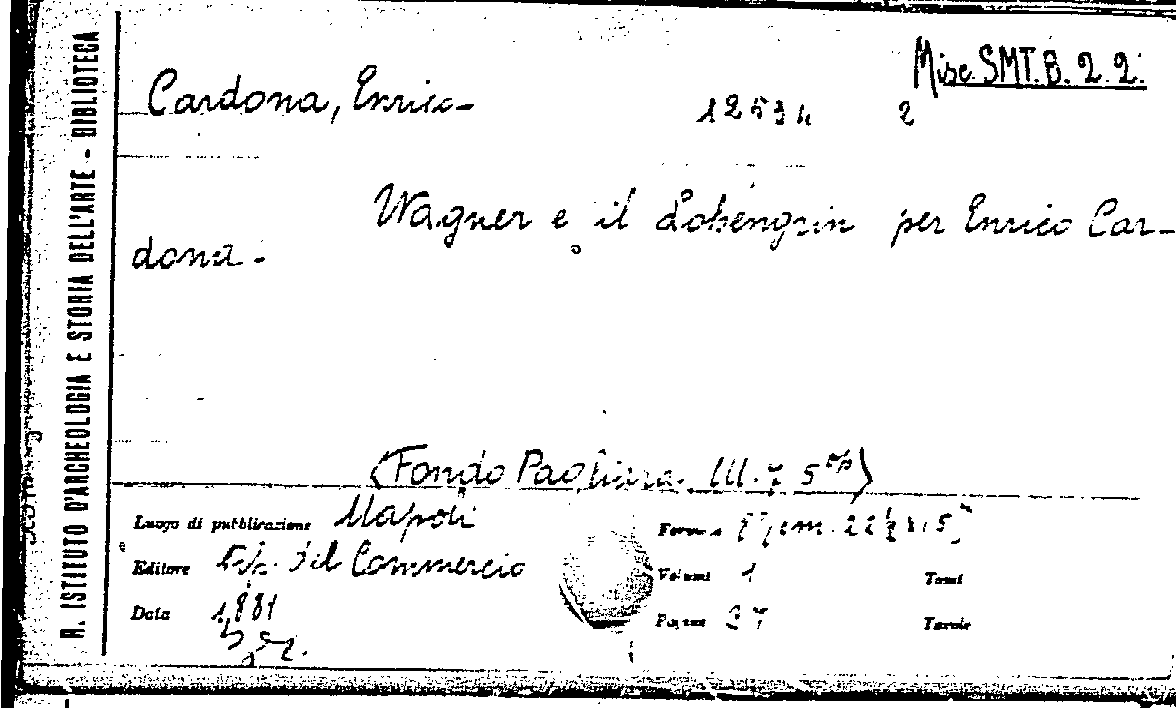 R. ISTITUTO D'ARCHEOLOGIA E STORIA DELL'ARTE - BIBLIOTECA
Misc. SMT. B. 2. 2.
Cardona, Enrico-
12534 2
Wagner e il Lohengrin per Enrico Car-
dona.
(Fondo Pagliara III. 7 5
Luogo di pubblicazione Napoli
Formato 8º, cm.
Editore Tip. del Commercio
Volumi 1 Tomi
Data 1881
Pagine 27 Tavole